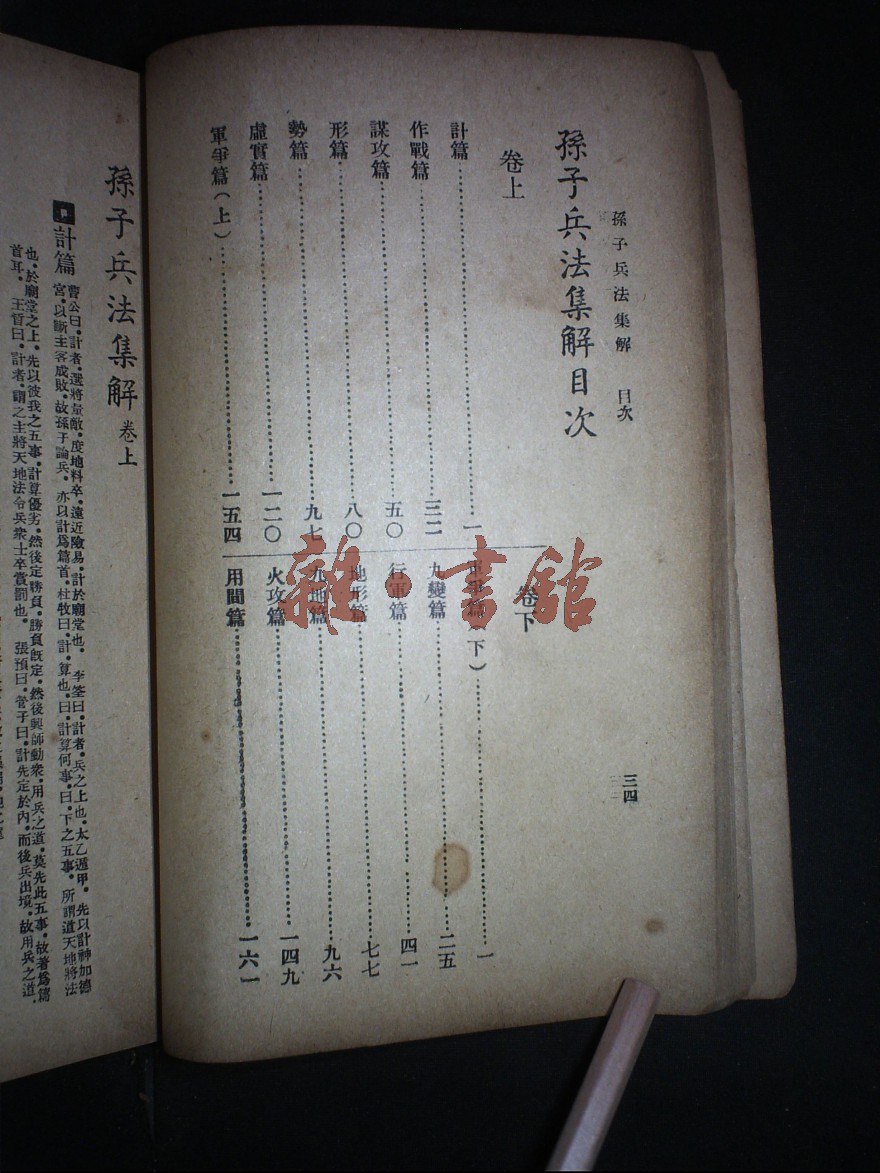 孫子兵法集解 目次
三四
孫子兵法集解目次
卷上
計篇 一
作戰篇 三二
謀攻篇 五〇
形篇 八〇
勢篇 九七
虛實篇 一二〇
軍爭篇(上) 一五四
卷下
軍爭篇(下) 一
九變篇 二五
行軍篇 四一
地形篇 七七
九地篇 九六
火攻篇 一四九
用間篇 一六一
雜·書館
孫子兵法集解 卷上
計篇
曹公曰。計者。選將量敵。度地料卒。遠近險易。計於廟堂也。 李筌曰。計者。兵之上也。太乙遁甲。先以計神加德
宮。以斷主客成敗。故孫子論兵。亦以計爲篇首。杜牧曰。計。算也。曰。計算何事。曰。下之五事。所謂道天地將法
也。於廟堂之上。先以彼我之五事。計算優劣。然後定勝負。勝負旣定。然後興師動衆。用兵之道。莫先此五事。故著爲篇
首耳。 王晳曰。計者。謂之主將天地法令兵衆士卒賞罰也。 張預曰。管子曰。計先定於內。而後兵出境。故用兵之道。